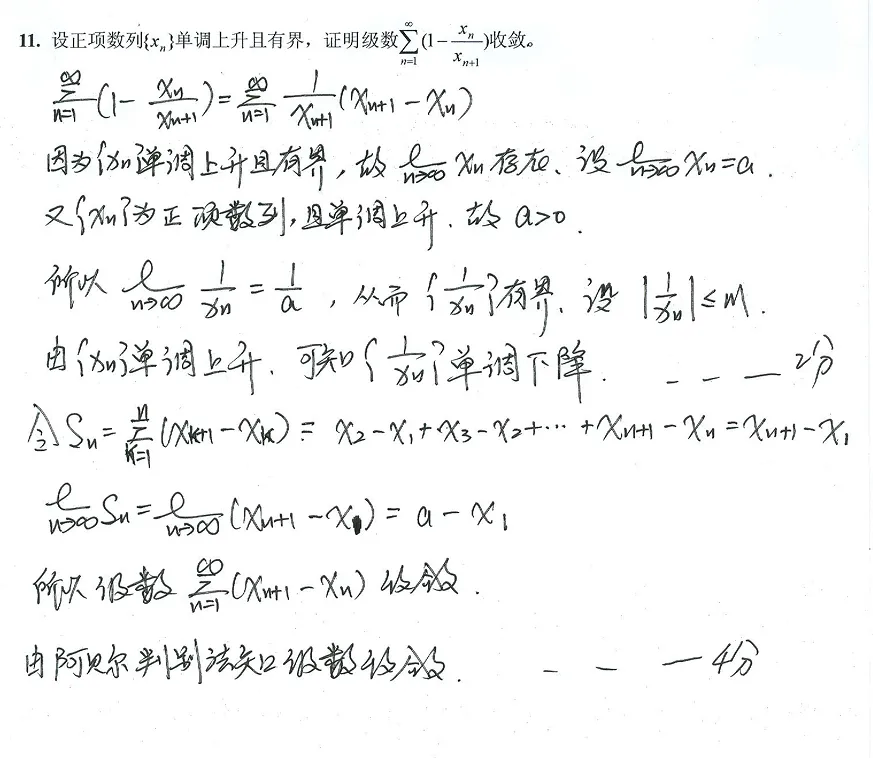 11. 设正项数列{xₙ}单调上升且有界，证明级数∑_{n=1}^{∞}(1-xₙ/xₙ₊₁)收敛。
∑_{n=1}^{∞}(1-xₙ/xₙ₊₁)=∑_{n=1}^{∞} 1/xₙ₊₁(xₙ₊₁-xₙ)
因为{xₙ}单调上升且有界，故 l_{n→∞} xₙ存在、设 l_{n→∞} xₙ=a.
又{xₙ}为正项数列,且单调上升.故 a>0.
所以 l_{n→∞} 1/xₙ = 1/a ，从而{1/xₙ}有界、设 |1/xₙ|≤M.
由{xₙ}单调上升.可知{1/xₙ}单调下降. - - — 2分
令Sₙ=∑_{k=1}^{n}(xₖ₊₁-xₖ)= x₂-x₁+x₃-x₂+⋯+xₙ₊₁-xₙ=xₙ₊₁-x₁
l_{n→∞} Sₙ=l_{n→∞}(xₙ₊₁-x₁)=a-x₁
所以级数∑_{n=1}^{∞}(xₙ₊₁-xₙ)收敛.
由阿贝尔判别法知级数收敛. - - — 4分